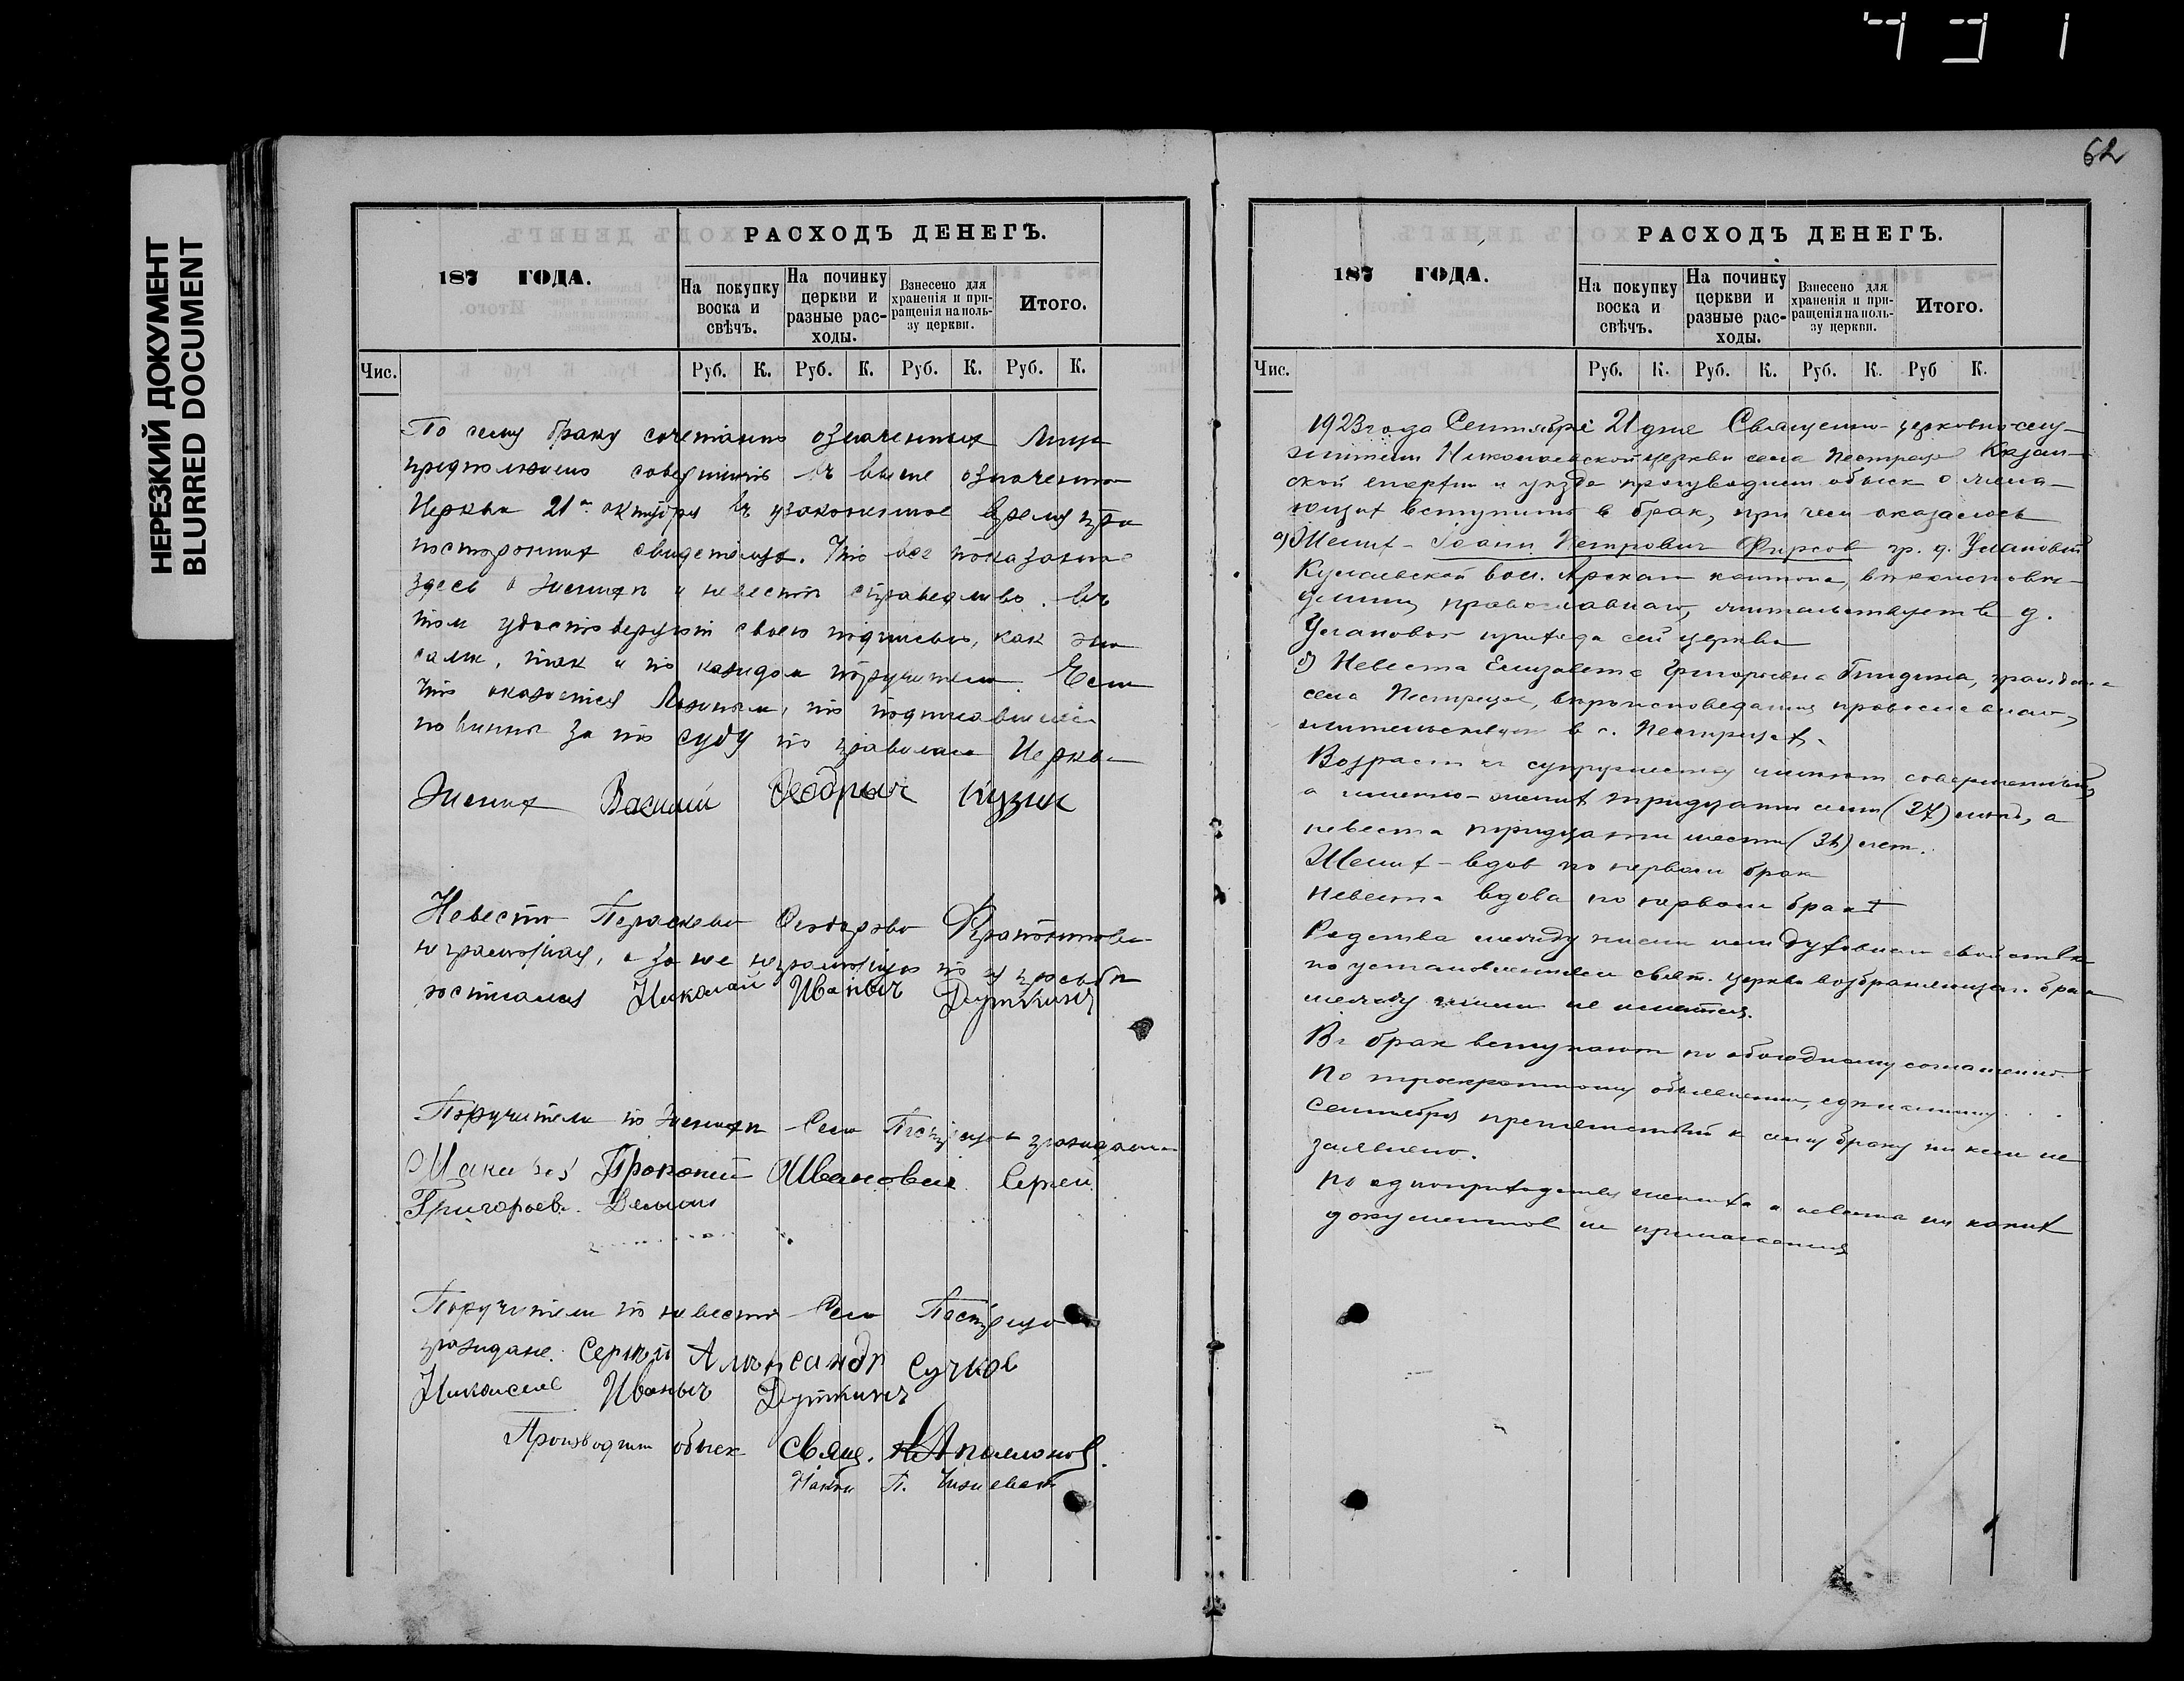 НЕРЕЗКИЙ ДОКУМЕНТ
BLURRED DOCUMENT
РАСХОДЪ ДЕНЕГЪ.
187 ГОДА.
На покупку воска и свѣчъ.
На починку церкви и разные расходы.
Взнесено для храненія и приращенія на пользу церкви.
Итого.
Чис.
Руб. К. Руб. К. Руб. К. Руб. К.
По сему браку сочетание означенных лиц
предположено совершить въ выше означенной
Церкви 21го октября въ узаконенное время при
посторонних свидетелях. Что все показанное
здесь о женихе и невесте справедливо. Въ
том удостоверяют своею подписью, как они
сами, так и по каждом поручители. Если
что окажется ложным, то подписавшиеся
повинны за то суду по правилам Церкви
Жених Василий Кузик
Невеста Параскева
неграмотная, а за нее неграмотную по ея просьбе
Николай Иваныч Дуткинъ
Поручители по женихе Села Пестрецы граждане
Прокопий Иванович Сергей
Григорьев.
Поручители по невесте Села Пестрецы
граждане: Сергей Александр Сучков
Николай Иваныч Дуткинъ
Производили обыск Свящ.
П.
62
РАСХОДЪ ДЕНЕГЪ.
187 ГОДА.
На покупку воска и свѣчъ.
На починку церкви и разные расходы.
Взнесено для храненія и приращенія на пользу церкви.
Итого.
Чис.
Руб. К. Руб. К. Руб. К. Руб К.
1923 года Сентября 21 дне Священно-церковно-слу-
жители Николаевской церкви села Пестрецы Казан-
ской епархии и уезда производили обыск о жела-
ющих вступить в брак, при чем оказалось
а) Жених - Іоанн Петрович Фирсов гр. д.
Кулаевской вол. Арскаго кантона, вероиспове-
дания православнаго, жительствует в д.
прихода сей церкви
б) Невеста Елизавета Григорьевна гражданка
села Пестрецы, вероисповедания православнаго,
жительствует в с. Пестрецах.
Возраст къ супружеству имеют совершенный,
а именно - жених тридцати семи (37) летъ, а
невеста тридцати шести (36) лет.
Жених - вдов по первом браке
Невеста вдова по первом браке
Родства между ними или духовнаго свойства
по установлениям свят. церкви возбраняющаго брак
между ними не имеется.
Въ брак вступают по обоюдному согласию.
По троекратному объявлению,
сентября препятствий к сему браку ни кем не
заявлено.
По одноприходству жениха и невесты ни каких
документов не прилагается